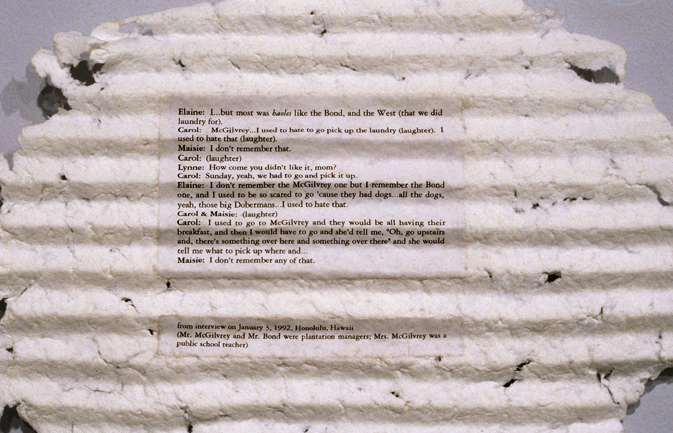 Elaine: I...but most was haoles like the Bond, and the West (that we did
laundry for).
Carol: McGilvrey...I used to hate to go pick up the laundry (laughter). I
used to hate that (laughter).
Maisie: I don't remember that.
Carol: (laughter)
Lynne: How come you didn't like it, mom?
Carol: Sunday, yeah, we had to go and pick it up.
Elaine: I don't remember the McGilvrey one but I remember the Bond
one, and I used to be so scared to go 'cause they had dogs...all the dogs,
yeah, those big Dobermans...I used to hate that.
Carol & Maisie: (laughter)
Carol: I used to go to McGilvrey and they would be all having their
breakfast, and then I would have to go and she'd tell me, "Oh, go upstairs
and, there's something over here and something over there" and she would
tell me what to pick up where and...
Maisie: I don't remember any of that.
from interview on January 3, 1992, Honolulu, Hawaii
(Mr. McGilvrey and Mr. Bond were plantation managers; Mrs. McGilvrey was a
public school teacher)